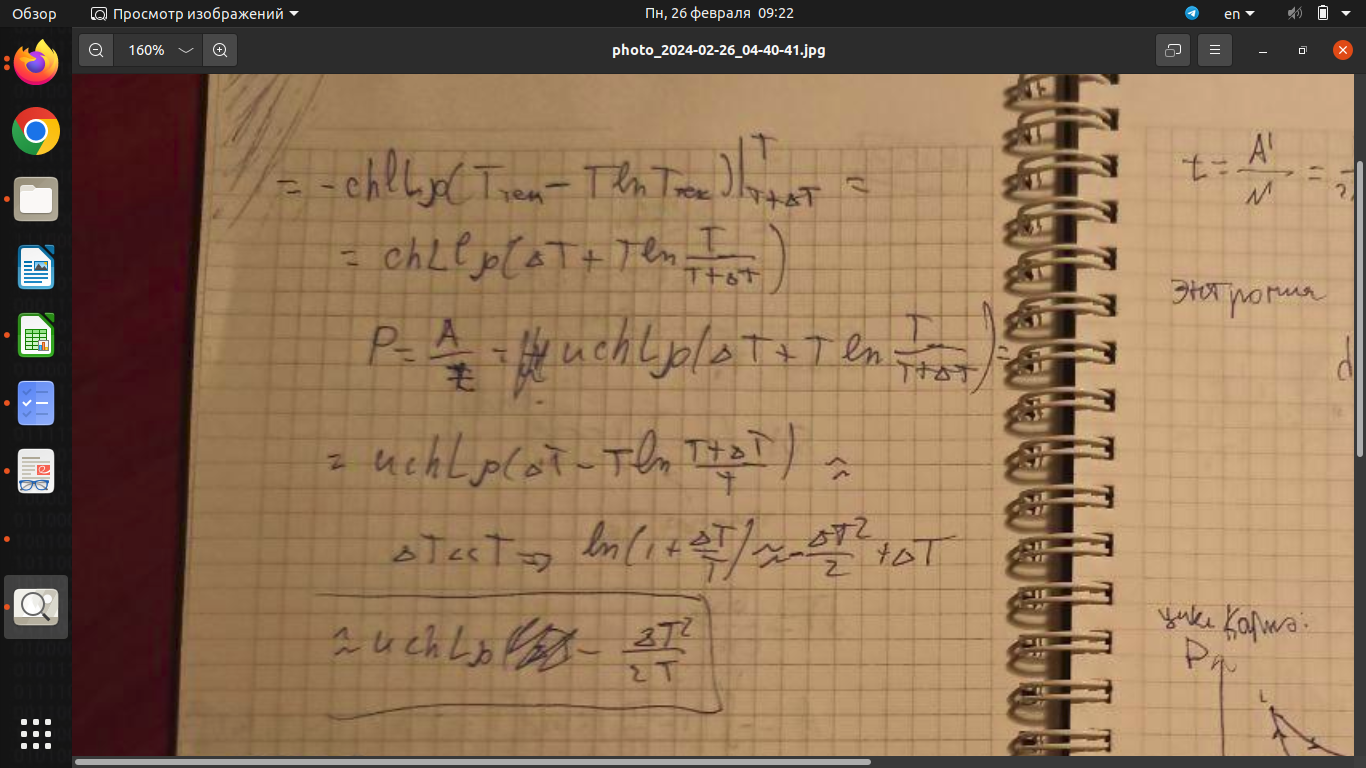 Обзор
Просмотр изображений
Пн, 26 февраля 09:22
en
160%
photo_2024-02-26_04-40-41.jpg
= -chlLρ(Tтеп - T ln Tтеп)|ᵀ_T+ΔT =
= chLlρ(ΔT + T ln T/(T+ΔT))
P = A/t = uchLρ(ΔT + T ln T/(T+ΔT)) =
= uchLρ(ΔT - T ln (T+ΔT)/T) ≈
ΔT << T ⇒ ln(1 + ΔT/T) ≈ - ΔT²/2 + ΔT
≈ uchLρ - ΔT²/2T
t = A'/N' =
Энтропия
d
цикл Карно:
P